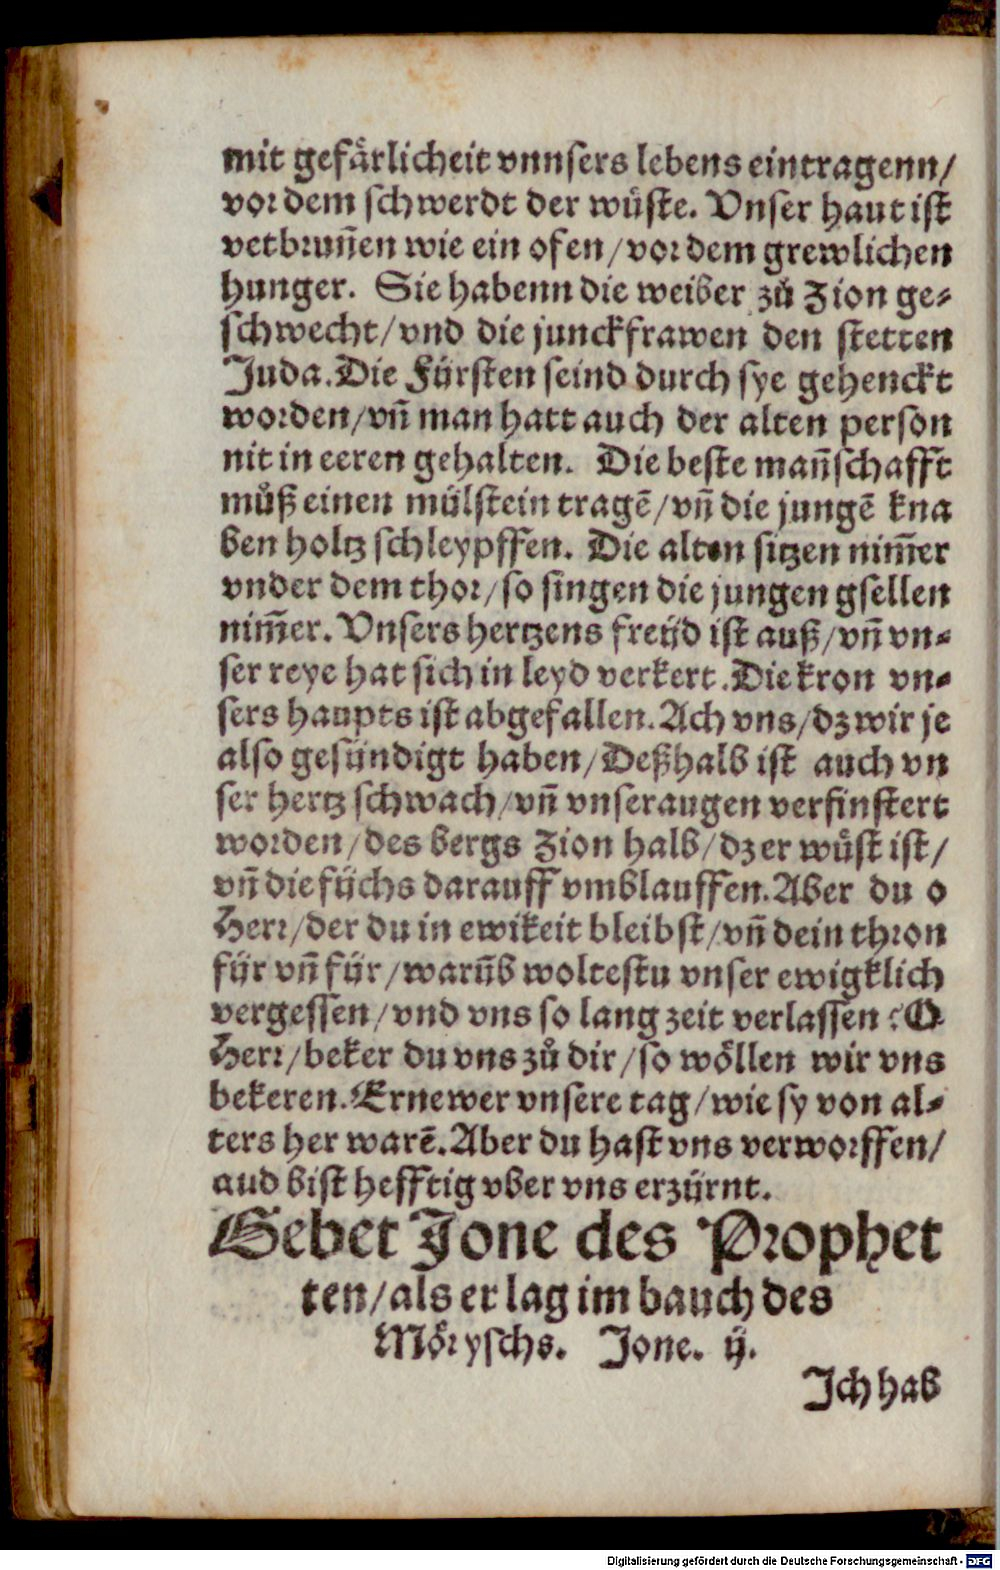 mit gefårlicheit vnnsers lebens eintragenn/
vor dem schwerdt der wůste. Vnser haut ist
vetbrun̄en wie ein ofen/vor dem grewlichen
hunger. Sie habenn die weiber zů Zion ge⸗
schwecht/vnd die junckfrawen den stetten
Juda. Die Fürsten seind durch sye gehenckt
worden/vn̄ man hatt auch der alten person
nit in eeren gehalten. Die beste man̄schafft
můß einen mülstein tragē/vn̄ die jungē kna
ben holtz schleypffen. Die alten sitzen nim̄er
vnder dem thor/so singen die jungen gsellen
nim̄er. Vnsers hertzens freüd ist auß/vn̄ vn⸗
ser reye hat sich in leyd verkert. Die kron vn⸗
sers haupts ist abgefallen. Ach vns/dz wir je
also gesündigt haben/Deßhalb ist auch vn
ser hertz schwach/vn̄ vnser augen verfinstert
worden/des bergs Zion halb/dz er wůst ist/
vn̄ die füchs darauff vmblauffen. Aber du o
Herr/der du in ewikeit bleibst/vn̄ dein thron
für vn̄ für/warūb woltestu vnser ewigklich
vergessen/vnd vns so lang zeit verlassen? O
Herr/beker du vns zů dir/so wőllen wir vns
bekeren. Ernewer vnsere tag/wie sy von al⸗
ters her warē. Aber du hast vns verworffen/
aud bist hefftig vber vns erzürnt.
Gebet Jone des Prophet
ten/als er lag im bauch des
Mőryschs. Jone. ij.
Ich hab
Digitalisierung gefördert durch die Deutsche Forschungsgemeinschaft - DFG